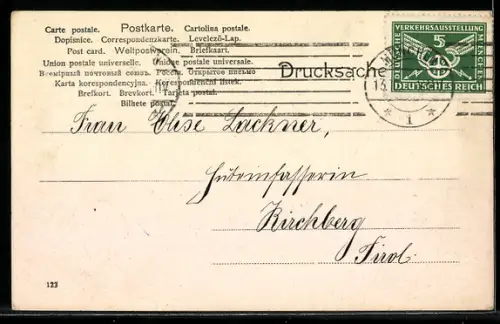 Carte postale. Postkarte. Cartolina postale.
Dopisnice. Correspondenzkarte. Levelező-Lap.
Post card. Weltpostverein. Briefkaart.
Union postale universelle. Unione postale universale.
Всемірный почтовый союзъ. Россія. Открытое письмо
Karta korespondencyjna. Korespondenční lístek.
Brefkort. Brevkort. Tarjeta postal.
Bilhete postal.
Drucksache
DEUTSCHE VERKEHRSAUSSTELLUNG MÜNCHEN
5
DEUTSCHES REICH
* 1 *
Frau Elise Lackner,
Huteinfasserin
Kirchberg
Tirol.
123